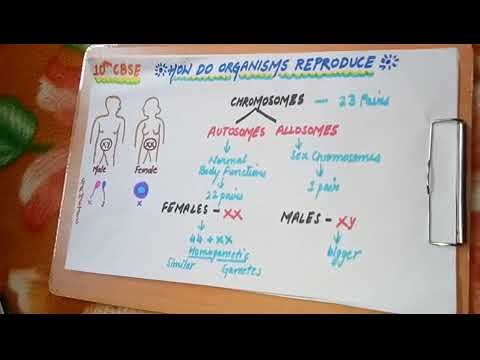 10th CBSE
HOW DO ORGANISMS REPRODUCE
CHROMOSOMES — 23 Pairs
AUTOSOMES ALLOSOMES
Normal
Body Functions
22 pairs
Sex Chromosomes
1 pair
XY
XX
Male
Female
X
X
FEMALES - XX
44 + XX
Homogametic
Similar Gametes
MALES - XY
bigger